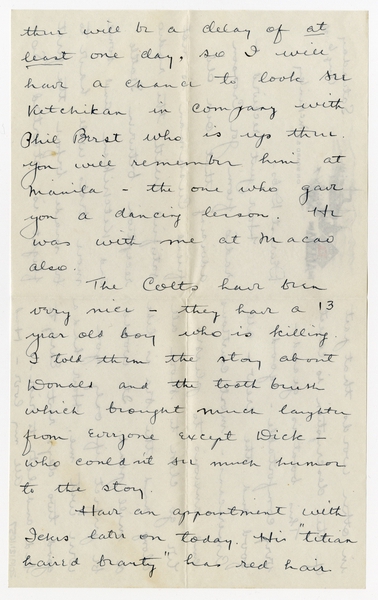 there will be a delay of at
least one day, so I will
have a chance to look see
Ketchikan in company with
Phil Berst who is up there.
You will remember him at
Manila - the one who gave
you a dancing lesson. He
was with me at Macao
also.
The Colts have been
very nice - they have a 13
year old boy who is killing.
I told them the story about
Donald and the tooth brush
which brought much laughter
from everyone except Dick -
who couldn't see much humor
to the story.
Have an appointment with
Ickes later on today. His "titian
haired beauty" has red hair